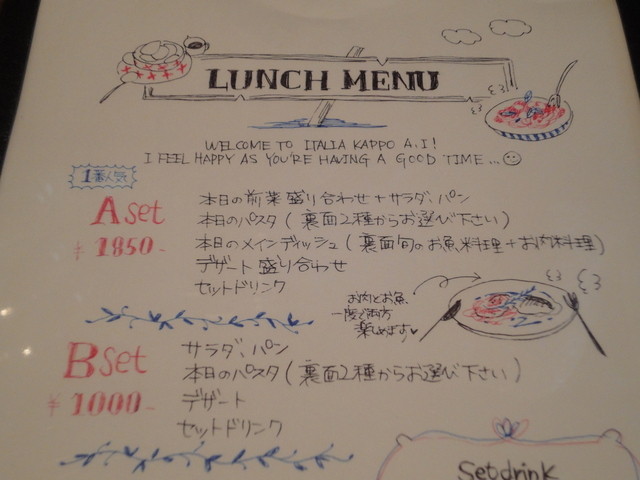 LUNCH MENU
WELCOME TO ITALIA KAPPO A.I!
I FEEL HAPPY AS YOU'RE HAVING A GOOD TIME...
1番人気
A set
¥1850-
本日の前菜盛り合わせ+サラダ、パン
本日のパスタ(裏面2種からお選び下さい)
本日のメインディッシュ(裏面旬のお魚料理+お肉料理)
デザート盛り合わせ
セットドリンク
お肉とお魚、
一度で両方
楽しめます♥
B set
¥1000-
サラダ、パン
本日のパスタ(裏面2種からお選び下さい)
デザート
セットドリンク
Setdrink